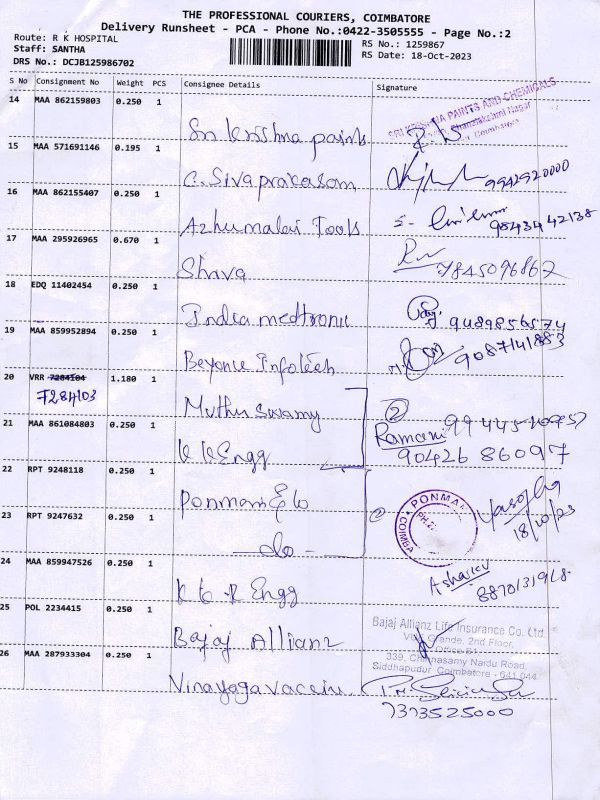 THE PROFESSIONAL COURIERS, COIMBATORE
Delivery Runsheet - PCA - Phone No.:0422-3505555 - Page No.:2
Route: R K HOSPITAL
RS No.: 1259867
Staff: SANTHA
RS Date: 18-Oct-2023
DRS No.: DCJB125986702
S No Consignment No Weight PCS Consignee Details Signature
14 MAA 862159803 0.250 1 Sri Krishna paints
SRI KRISHNA PAINTS AND CHEMICALS
Coimbatore
15 MAA 571691146 0.195 1 C. Sivaprakasam 9942920000
16 MAA 862155407 0.250 1 Azhumalai Tools 9843442138
17 MAA 295926965 0.670 1 Shiva 9845096867
18 EDQ 11402454 0.250 1 India medtronic 9489856574
19 MAA 859952894 0.250 1 Beyonce Infotech 9087141883
20 VRR 7284104 1.180 1 Muthu Swamy
7284103
②
21 MAA 861084803 0.250 1 K K Engg Ramani
90426 86097
22 RPT 9248118 0.250 1 Ponmani E/o
PONMA
COIMBA
18/10/23
23 RPT 9247632 0.250 1 - do -
24 MAA 859947526 0.250 1 K G R Engg
25 POL 2234415 0.250 1 Bajaj Allianz
Bajaj Allianz Life Insurance Co. Ltd
Grande, 2nd Floor
339, Chinnasamy Naidu Road,
Siddhapudur, Coimbatore - 641 044
26 MAA 287933304 0.250 1 Vinayaga vaccin
7373525000